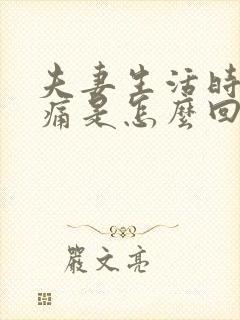 夫妻生活時
痛是怎麼回
嚴文亮